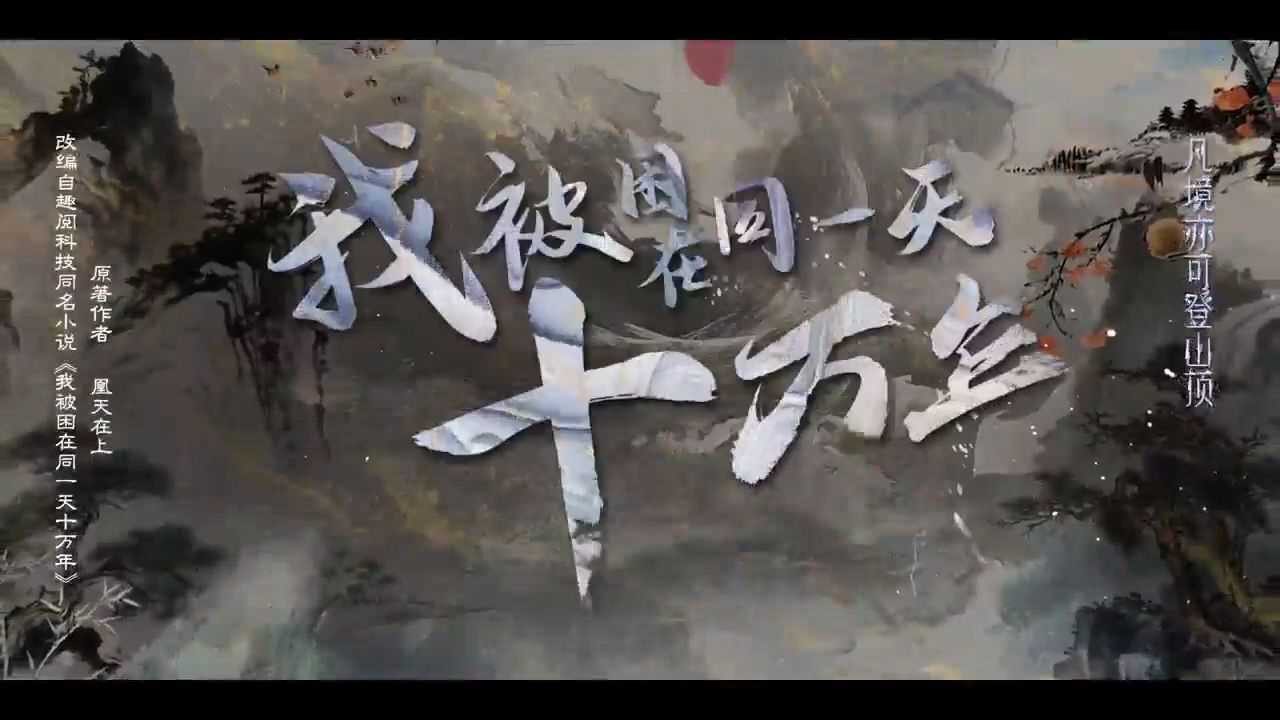 我被困在同一天
十万年
凡境亦可登山顶
原著作者 凰天在上
改编自趣阅科技同名小说《我被困在同一天十万年》